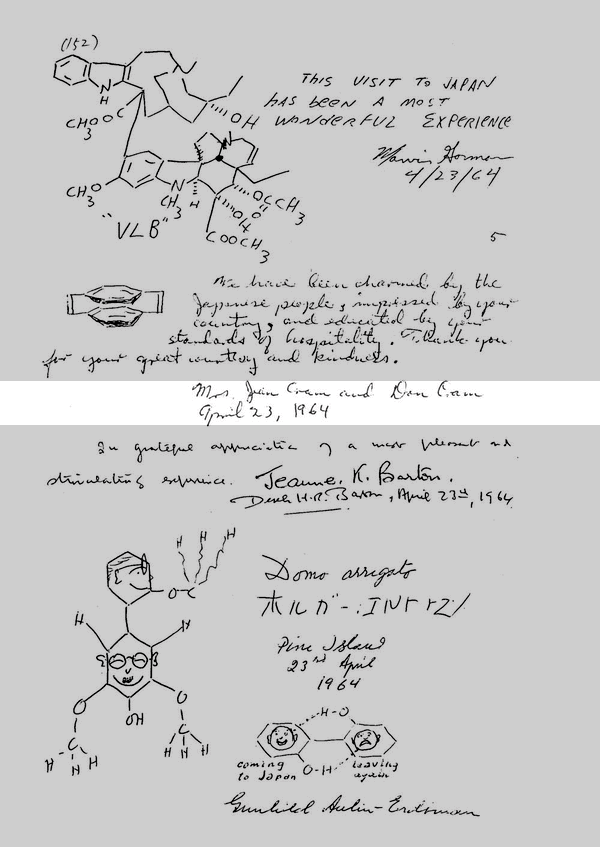 (152)
THIS VISIT TO JAPAN
HAS BEEN A MOST
WONDERFUL EXPERIENCE
Marvin Gorman
4/23/64
N
H
CH3OOC
OH
CH3O
N
CH3
H
OCCH3
O
OH
COOCH3
"VLB"
5
We have been charmed by the
Japanese people, impressed by your
country, and educated by your
standards of hospitality. Thank you
for your great country and kindness.
Mrs. Jean Cram and Don Cram
April 23, 1964
In grateful appreciation of a most pleasant and
stimulating experience. Jeanne. K. Barton.
Derek H.R. Barton, April 23rd, 1964
H H H
O-C
H H
O OH O
C C
H H H H H H
Domo arrigato
ホルガー
Pine Island
23rd April
1964
H-O
coming
to Japan
O-H
leaving
again
Gunhild Aulin-Erdtman